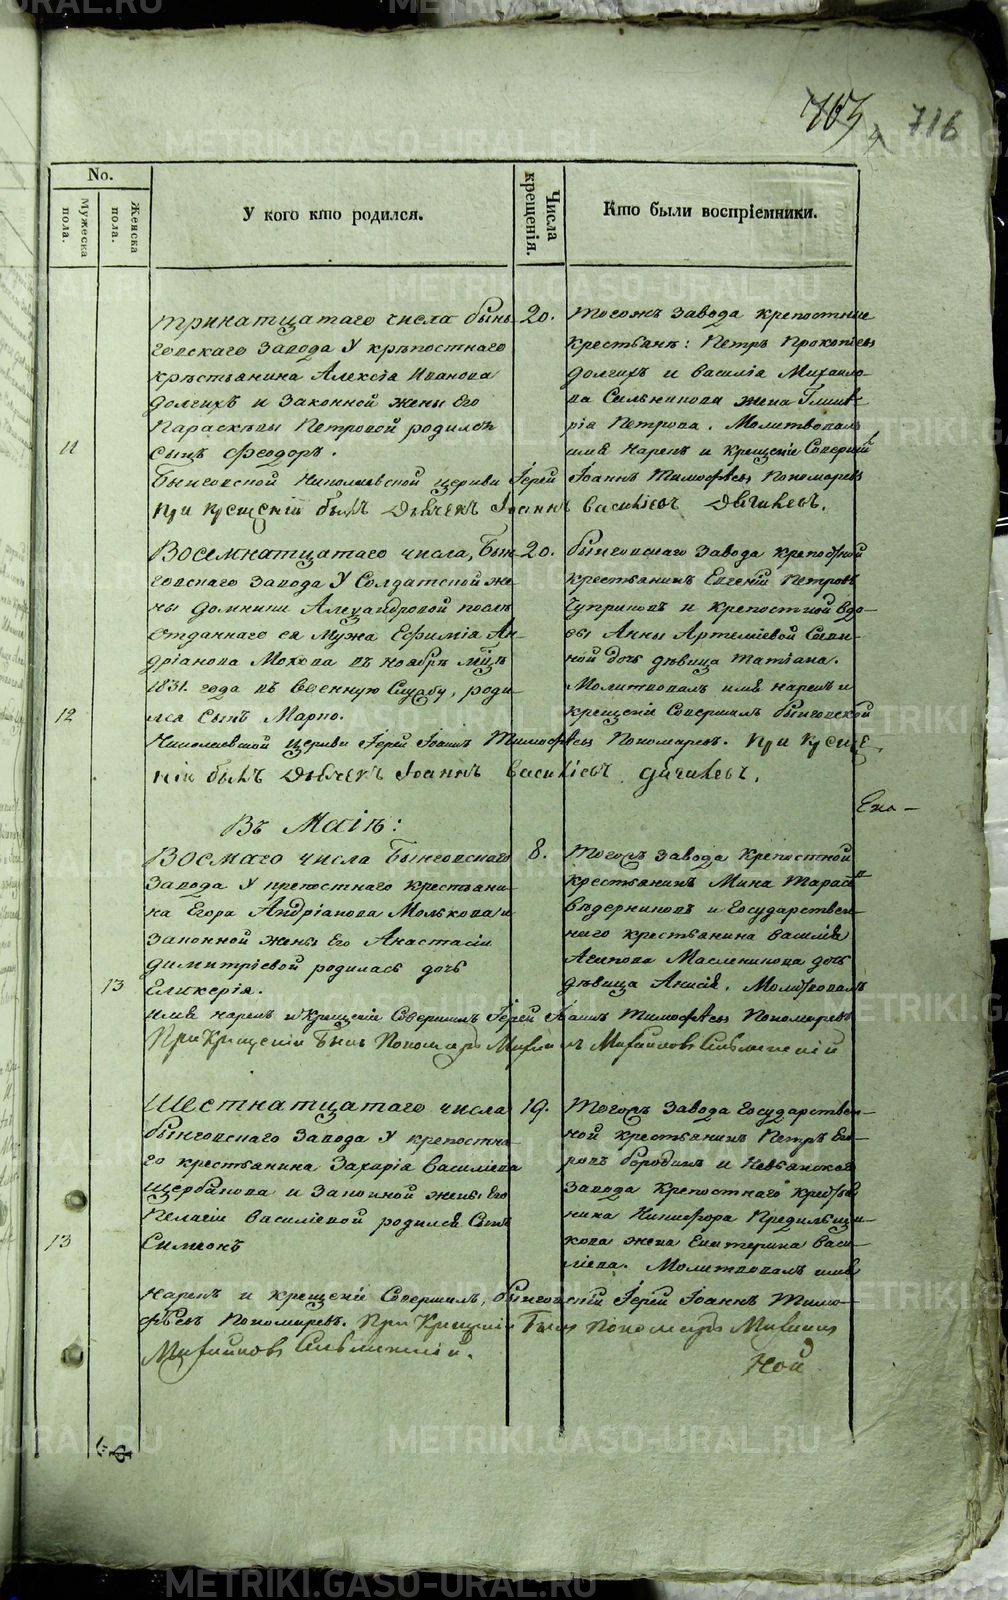 763 716
No.
Мужеска пола.
Женска пола.
У кого кто родился.
Числа крещенія.
Кто были воспріемники.
11
Тринатцатаго числа Бынь-
говскаго Завода У крѣпостнаго
крѣстьянина Алексѣя Иванова
Долгихъ и Законной жены Его
Параскѣвы Петровой родился
сынъ Феодоръ.
20.
Тогожъ завода крепостные
крестьяне: Петръ Прокопьевъ
долгихъ и василія Михаило-
ва Сильникова жена
Петрова. Молитвовалъ
имя нарекъ и крещеніе Совершилъ
Бынговской Николаевской церкви Іерей Іоаннъ Тимофѣевъ Пономаревъ
при крещеніи былъ Дьячекъ Іоаннъ Васильевъ Дягилевъ.
12
Восемнатцатаго числа, Бын-
говскаго завода У Солдатской же-
ны Домники Александровой послѣ
Отданнаго ея Мужа Ефимія Ан-
дріанова Мохова въ ноябрѣ мцѣ
1831. года въ военную Службу, роди-
лся сынъ Марко.
20.
бынговскаго завода крепостной
крестьянинъ Евгеній Петровъ
Чуприновъ и крепостной вдо-
вы Анны Артеміевой
дочь дѣвица татіана.
Молитвовалъ имя нарекъ и
крещеніе Совершилъ бынговской
Николаевской церкви Іерей Іоаннъ Тимофѣевъ Пономаревъ. При Креще-
ніи былъ Дьячекъ Іоаннъ Васильевъ Дягилевъ.
Ека-
Въ Маіѣ:
13
Восмаго числа Бынговскаго
Завода У крепостнаго крестьяни-
на Егора Андріанова Молькова и
законной жены Его Анастасіи
димитріевой родилась дочь
Гликерія.
8.
Тогожъ завода крепостной
крестьянинъ Мина Тарасовъ
вѣдерниковъ и Государствен-
наго крестьянина василія
Асипова Масленикова дочь
дѣвица Анисія. Молитвовалъ
имя нарекъ и Крещеніе Совершилъ Іерей Іоаннъ Тимофѣевъ Пономаревъ
При Крещеніи Былъ Пономарь Михаилъ Михайловъ
13
Шестнатцатаго числа
бынговскаго Завода У крепостна-
го крестьянина Захарія Василіева
щербакова и Законной жены Его
Пелагіи Василіевой родился Сынъ
Симеонъ
19.
Тогожъ завода Государствен-
ной крестьянинъ Петръ Его-
ровъ бородинъ и невьянскаго
завода крепостнаго крестья-
нина Никифора
жена Екатерина васи-
ліева. Молитвовалъ имя
нарекъ и крещеніе Совершилъ, бынговскій Іерей Іоаннъ Тимо-
фѣевъ Пономаревъ. При Крещеніи Былъ Пономарь Михаилъ
Михайловъ
ной
METRIKI.GASO-URAL.RU